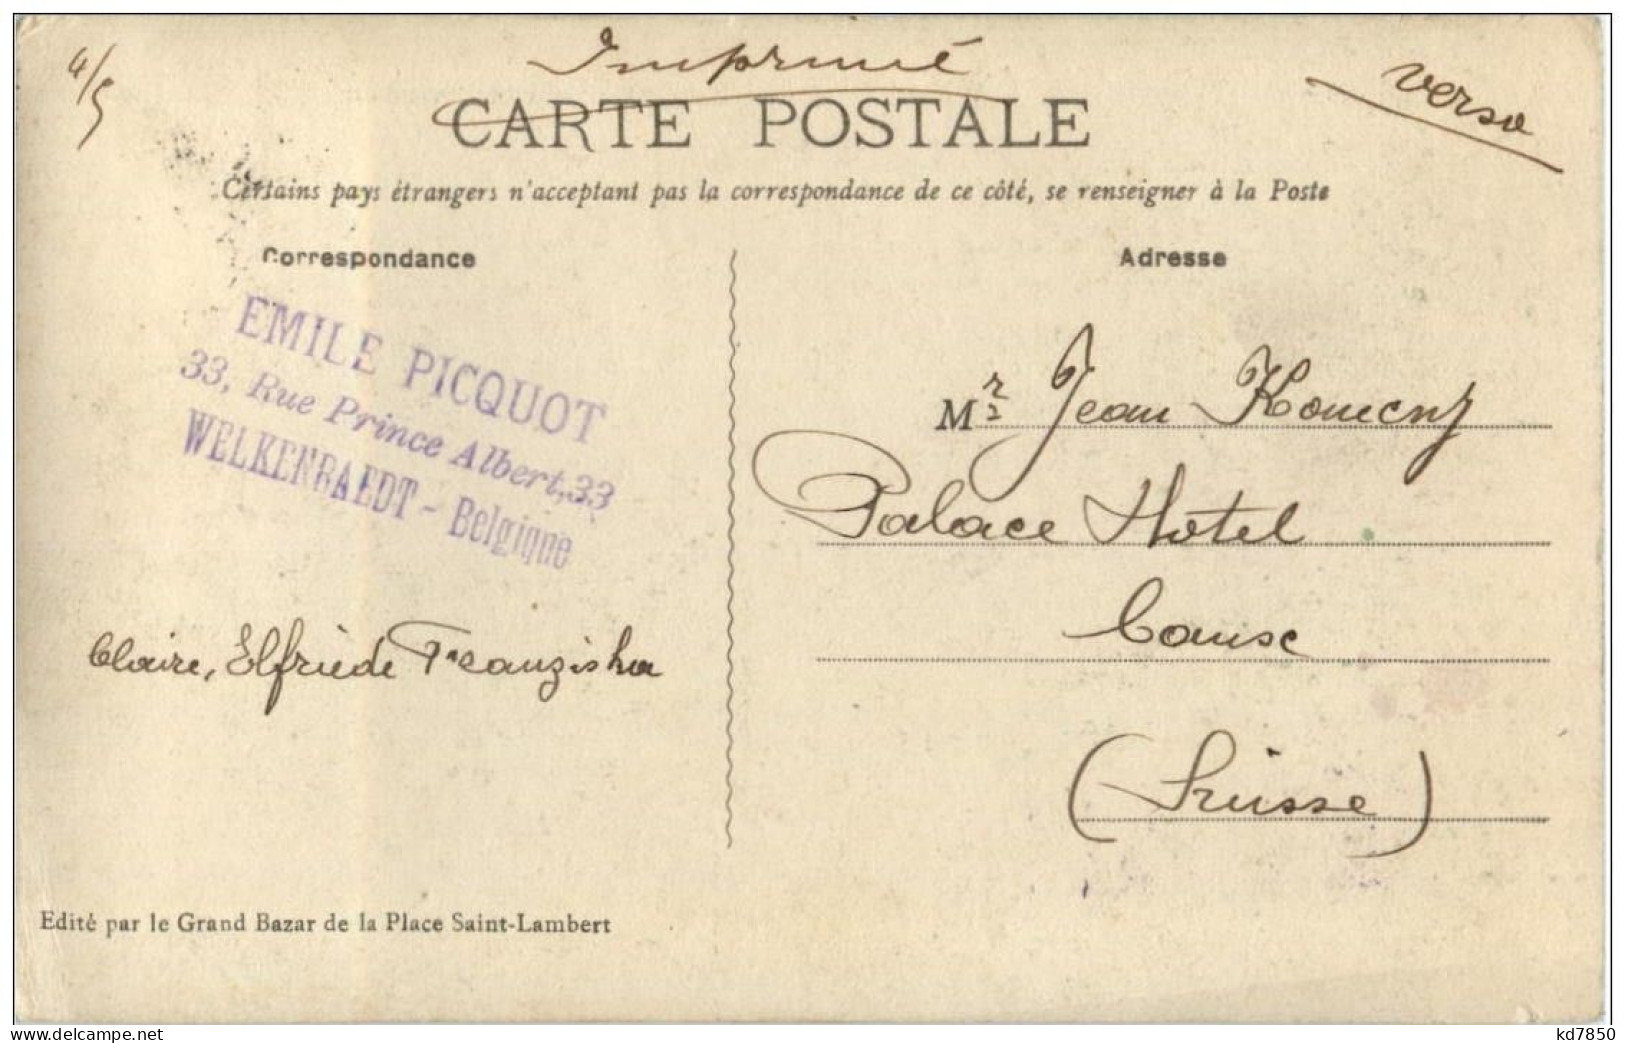 4/5
Imprimé
verso
CARTE POSTALE
Certains pays étrangers n'acceptent pas la correspondance de ce côté, se renseigner à la Poste
Correspondance
Adresse
EMILE PICQUOT
33, Rue Prince Albert, 33
WELKENRAEDT - Belgique
Mr Jean
Palace Hotel
Caux
(Suisse)
Claire, Elfriede Franziska
Edité par le Grand Bazar de la Place Saint-Lambert
www.delcampe.net
kd7850